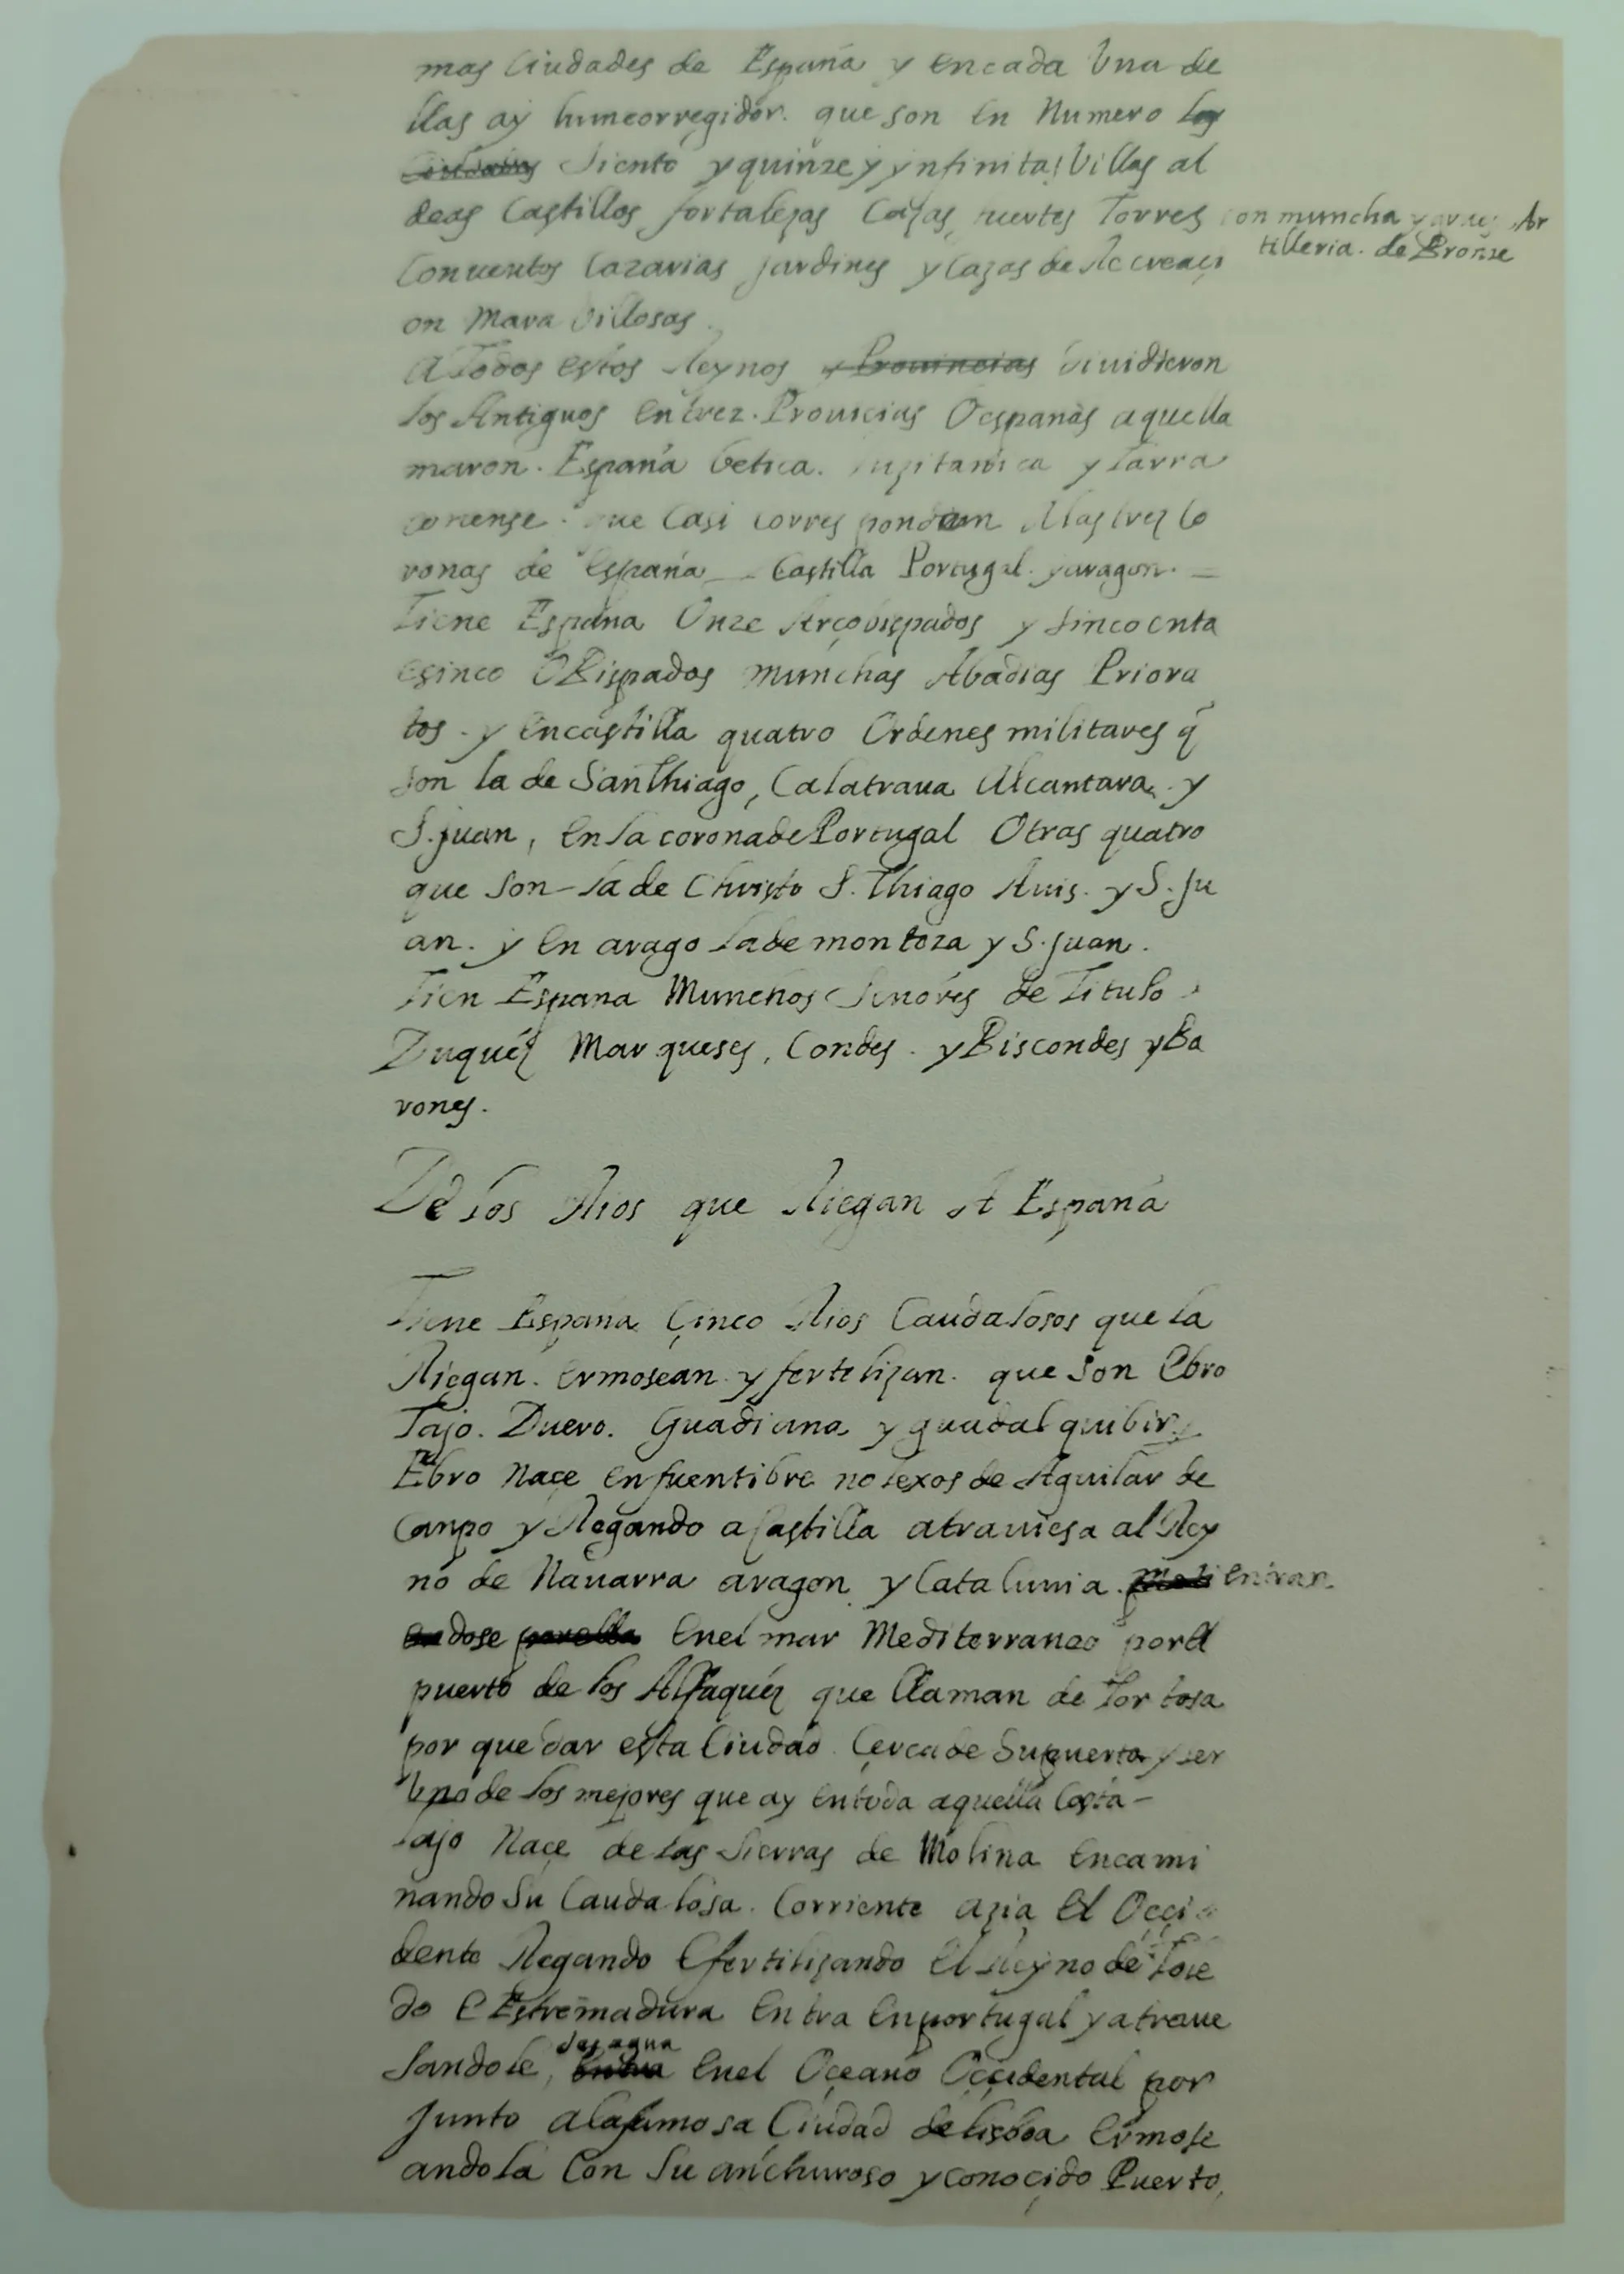 mas Ciudades de España y encada Una de
llas ay huncorregidor. que son en Numero los
Ciudades siento y quinze y ynfinitas Villas al
deas Castillos fortalezas Casas fuertes Torres con muncha y Ar
tilleria. de Bronze
Conventos Cazarias jardines y Cazas de Recreaçi
on Mara Villosas.
a Todos estos Reynos y Provincias dividieron
los Antiguos en trez. Provicias O espanas aquella
maron. España betica. luzitanica y tarra
conense. que Casi corres pondem Alas trez Co
ronas de españa — Castilla Portugal. y aragon. =
Tiene España Onze Arçobispados y sincoenta
esinco OBispados munchas Abadias Priora
tos. y encastilla quatro Ordenes militares q̃
son la de SanThiago, Calatraua Alcantara. y
S. juan, en la coronadePortugal Otras quatro
que son – la de Christo S. Thiago Auis. y S. Ju
an. y en arago lade montoza y S. juan.
Tien España Munchos Senóres de Titulo
Duqués Marqueses, Condes. y Biscondes y Ba
rones.
De los Rios que Riegan A España
Tiene España Çinco Rios Caudalosos que la
Riegan. ermosean y fertelizan. que son Ebro
Tajo. Duero. Guadiana y guadalquibir.
Ebro Naçe en fuentibre no lexos de Aguilar de
Canpo y Regando a Castilla atrauiesa al Rey
no de Nauarra aragon y Catalunia. entran
dose por ella enel mar Mediterraneo por el
puerto de los Alfaqués que llaman de Tortosa
por quedar esta Ciudad Cerca de Supuerto y ser
Uno de los mejores que ay entoda aquella Costa –
Tajo Naçe de las Sierras de Molina encami
nando Su Caudalosa. Corriente azia el Occi
dente Regando Efertilizando el Reyno de Tole
do e Estremadura entra enportugal y atraue
sandole, desagua entra enel Oçeano Occidental por
Junto alafamosa Ciudad delisboa ermose
andola Con Su anchuroso y conoçido Puerto,